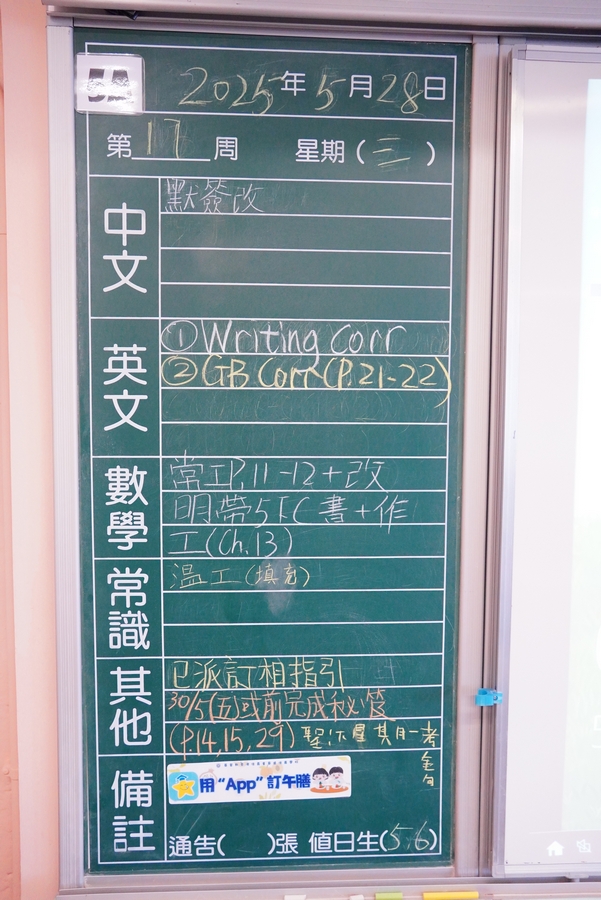 5A
2025年5月28日
第17周 星期(三)
中文
默簽改
英文
①Writing Corr
②GB Corr(P.21-22)
數學
常工P.11-12+改
明帶5下C書+作
工(Ch.13)
常識
温工(填充)
其他
已派訂相指引
30/5(五)或前完成秘笈
(P.14,15,29)聖
考
金句
備註
用“App”訂午膳
通告( )張 值日生(5,6)